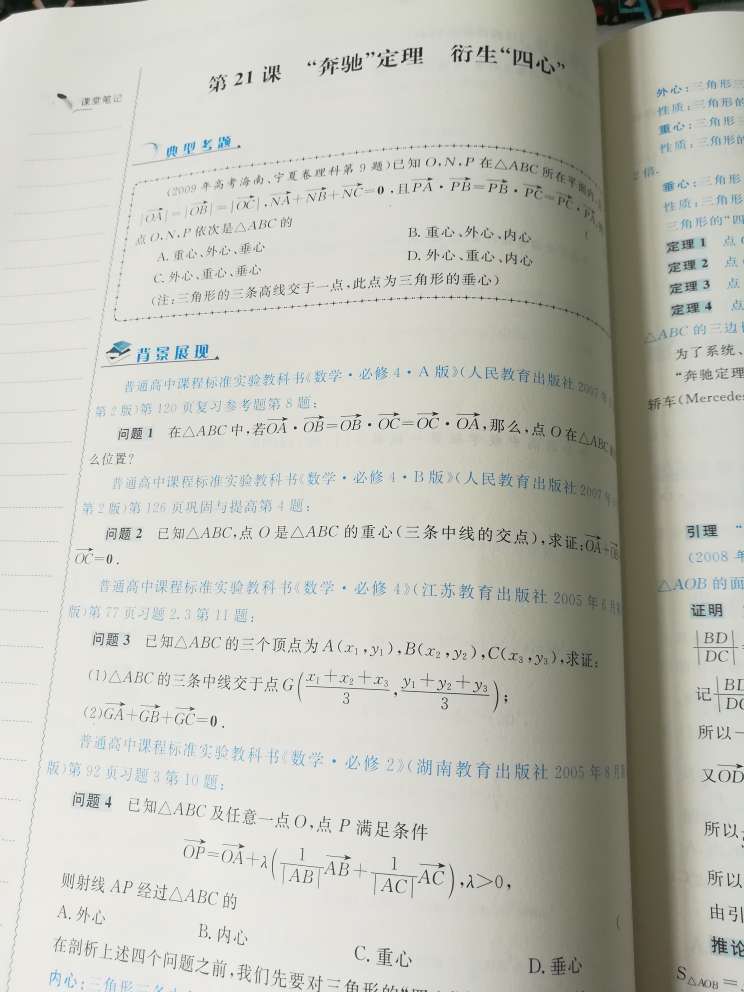 第21课 “奔驰”定理 衍生“四心”
课堂笔记
典型考题
(2009年高考海南、宁夏卷理科第9题)已知O,N,P在△ABC所在平面内,且
|OA|=|OB|=|OC|,NA+NB+NC=0,且PA·PB=PB·PC=PC·PA,则
点O,N,P依次是△ABC的 (
A. 重心、外心、垂心 B. 重心、外心、内心
C. 外心、重心、垂心 D. 外心、重心、内心
(注:三角形的三条高线交于一点,此点为三角形的垂心)
背景展现
普通高中课程标准实验教科书《数学·必修4·A版》(人民教育出版社2007年
第2版)第120页复习参考题第8题:
问题1 在△ABC中,若OA·OB=OB·OC=OC·OA,那么,点O在△ABC
么位置?
普通高中课程标准实验教科书《数学·必修4·B版》(人民教育出版社2007年
第2版)第126页巩固与提高第4题:
问题2 已知△ABC,点O是△ABC的重心(三条中线的交点),求证:OA+OB
OC=0.
普通高中课程标准实验教科书《数学·必修4》(江苏教育出版社2005年6月
版)第77页习题2.3第11题:
问题3 已知△ABC的三个顶点为A(x₁,y₁),B(x₂,y₂),C(x₃,y₃),求证:
(1)△ABC的三条中线交于点G((x₁+x₂+x₃)/3,(y₁+y₂+y₃)/3);
(2)GA+GB+GC=0.
普通高中课程标准实验教科书《数学·必修2》(湖南教育出版社2005年8月
版)第92页习题3第10题:
问题4 已知△ABC及任意一点O,点P满足条件
OP=OA+λ(1/|AB| AB+1/|AC| AC),λ>0,
则射线AP经过△ABC的 (
A. 外心 B. 内心 C. 重心 D. 垂心
在剖析上述四个问题之前,我们先要对三角形的“四
内心:三角形三条
外心:三角形三
性质:三角形的
重心:三角形三
性质:三角形的
2倍.
垂心:三角形
性质:三角形
三角形的“四
定理1 点
定理2 点
定理3 点
定理4 点
△ABC的三边
为了系统、
“奔驰定理
轿车(Mercede
引理 “
(2008年
△AOB的面
证明
|BD|/|DC|=
记|BD
所以
又OD
所以
所以
由引
推论
S△AOB=